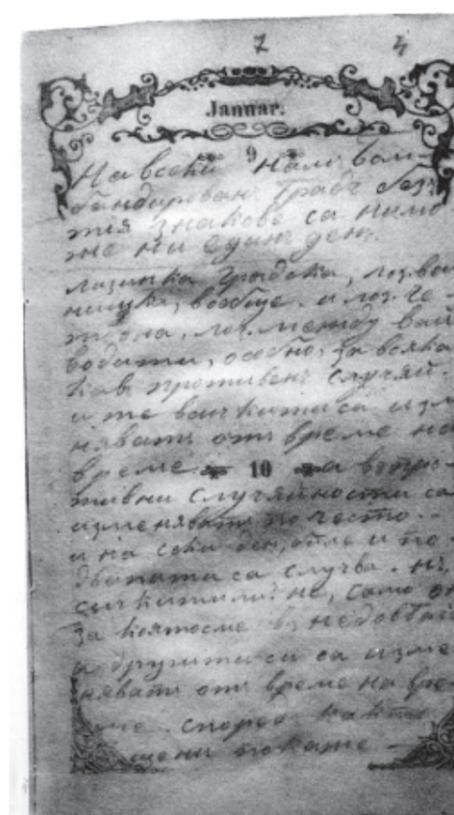 7 4
Januar.
9
На всеки налъ бом-
бандиранъ градъ безъ
тия знакове са нимо
же ни единъ денъ.
лозинка градска, лозвой
нишка, вообще. и лоз. че
на, лоз. между вой
водити, особно, за всяка
кавъ противенъ случай.
и те всичкити са изм
няватъ отъ време на
време. 10 а въпро-
тивни случайности са
изменяватъ по често. -
и на секи денъ, или и по
дванати са случва. нъ,
сичкити ли? не, само он
за коятосме въ недобвий
а другити си са изме
няватъ отъ време на вре-
ме. според както
щени покаже -